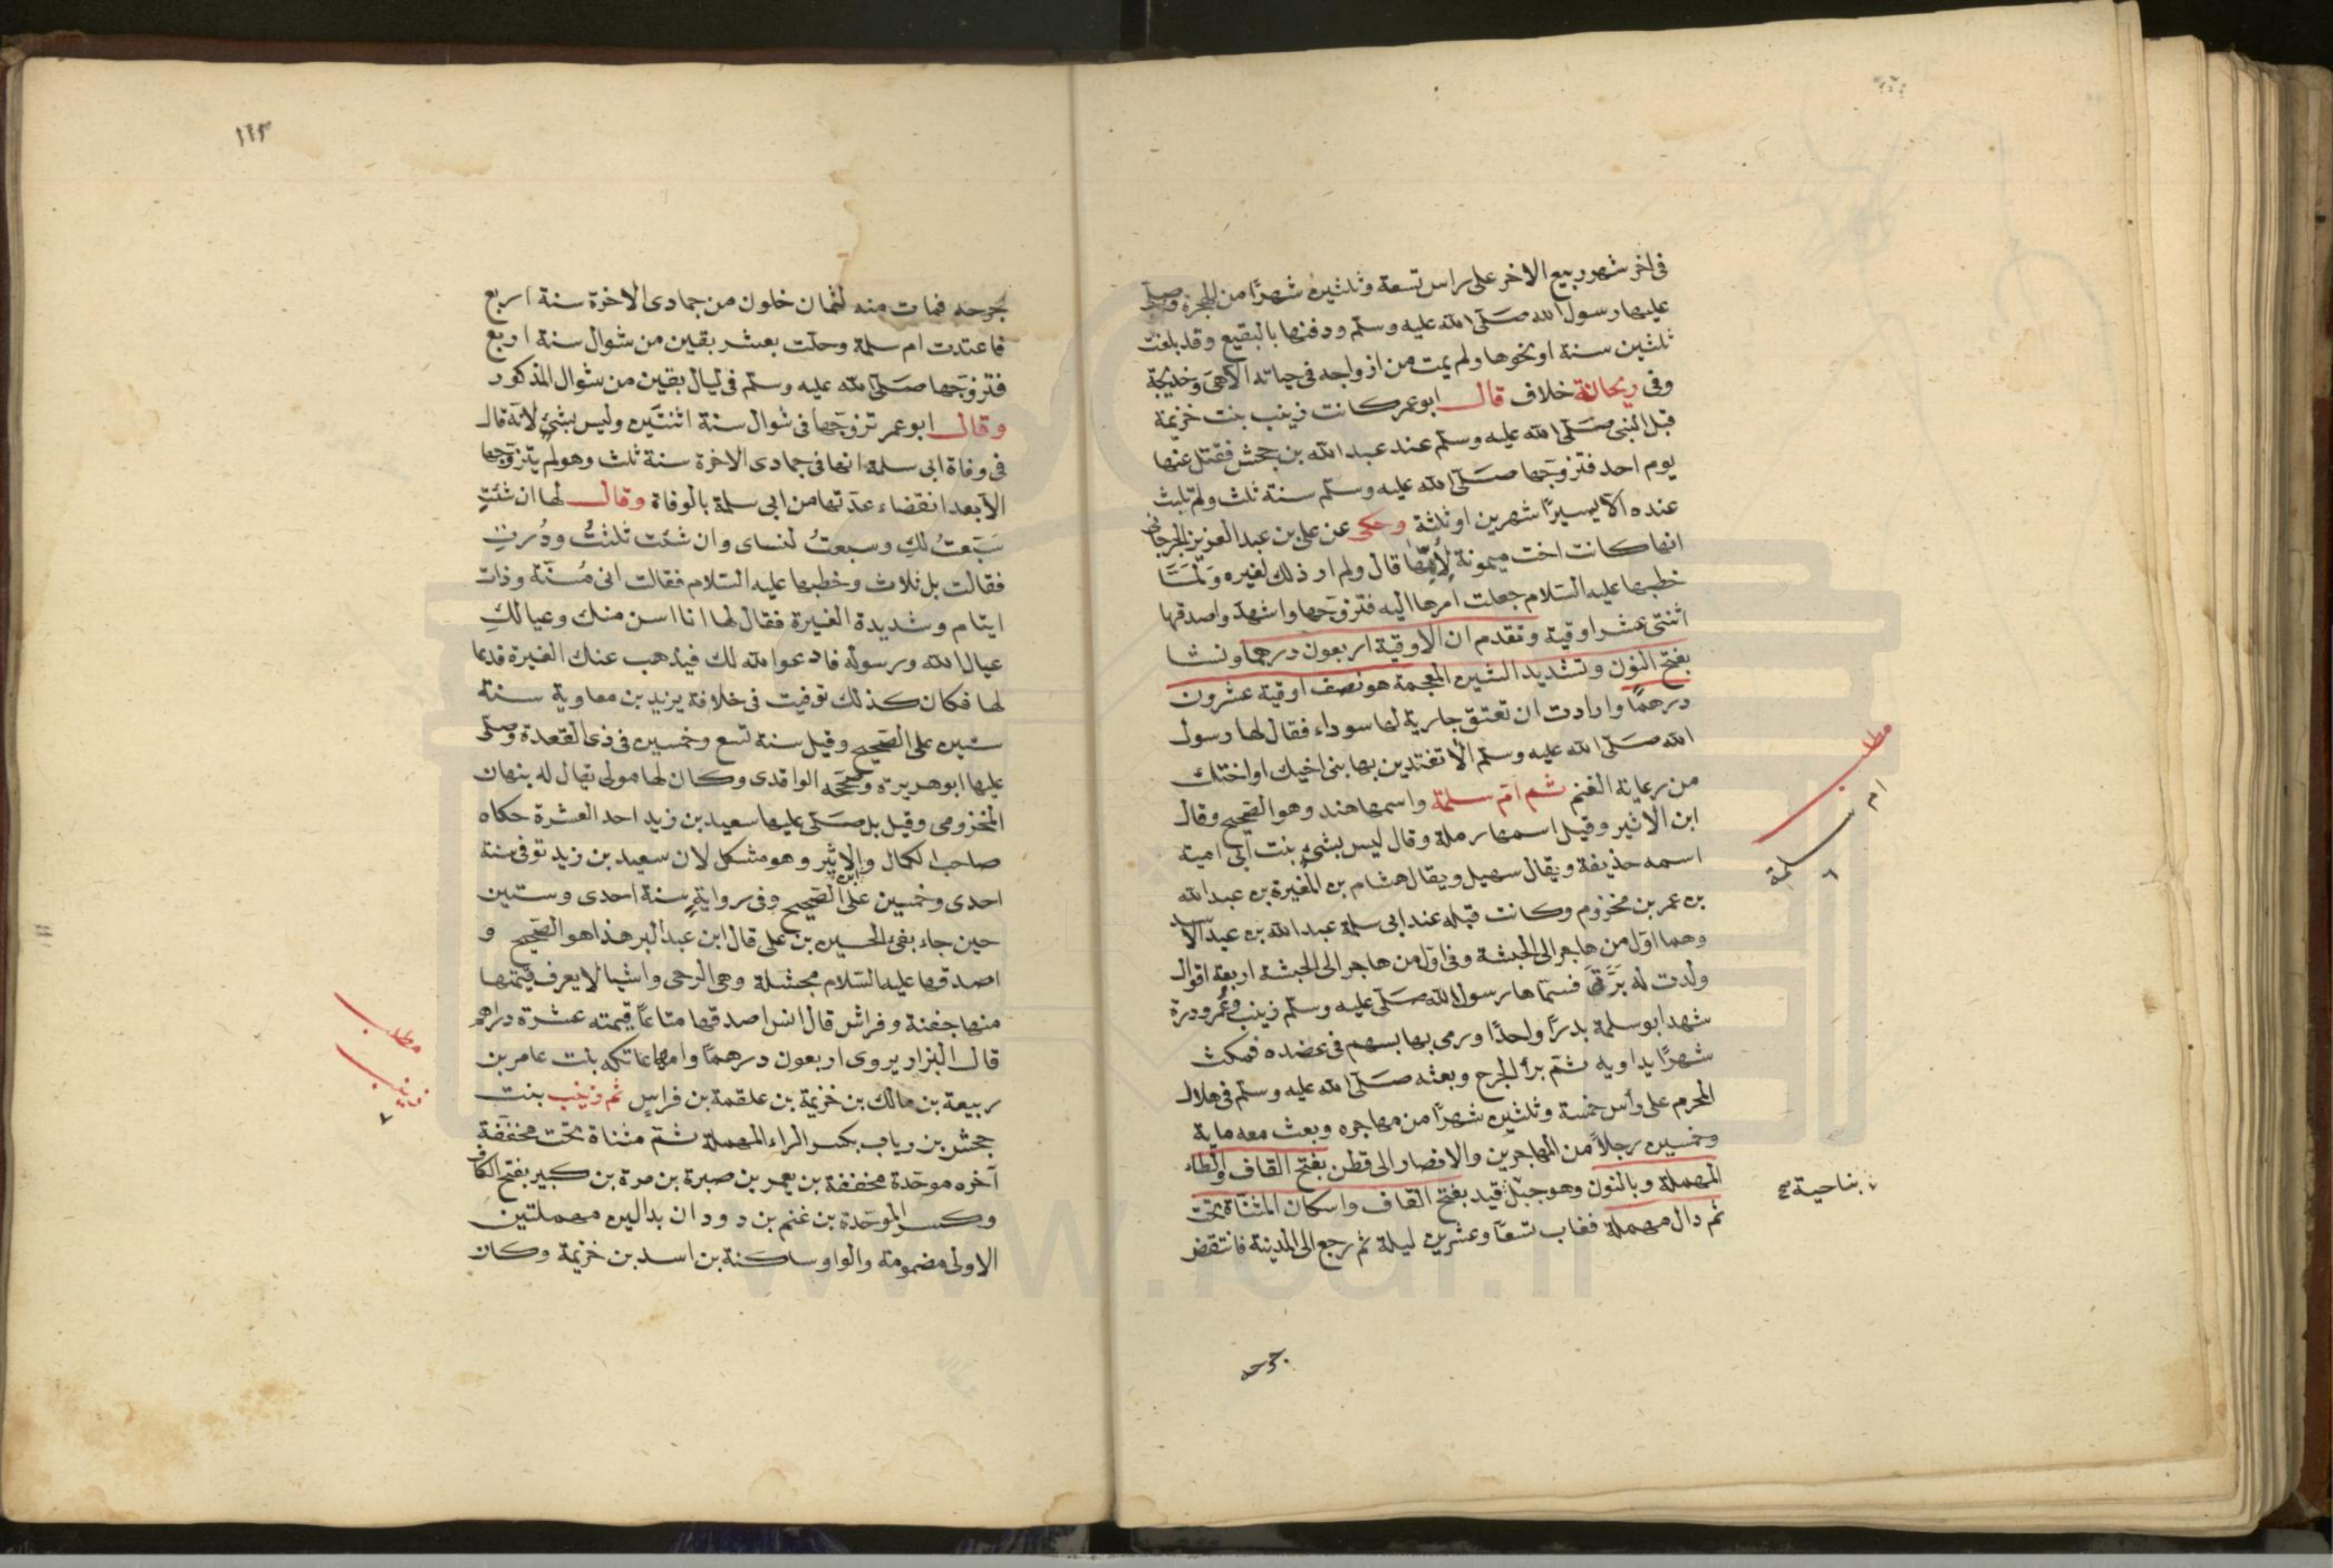 فى اخر شهر ربيع الاخر على راس تسعة وثلثين شهرًا من الهجرة وصلى
عليها رسول الله صلى الله عليه وسلم ودفنها بالبقيع وقد بلغت
ثلثين سنة او نحوها ولم يمت من ازواجه فى حياته الا هى وخديجة
وفى ريحانة خلاف قال ابو عمر كانت زينب بنت خزيمة
قبل النبى صلى الله عليه وسلم عند عبد الله بن جحش فقتل عنها
يوم احد فتزوجها صلى الله عليه وسلم سنة ثلث ولم تلبث
عنده الا يسيرًا شهرين او ثلثة وحكى عن على بن عبد العزيز الجرجانى
انها كانت اخت ميمونة لأمها قال ولم ار ذلك لغيره ولمّا
خطبها عليه السلام جعلت امرها اليه فتزوجها واشهد واصدقها
اثنتى عشر اوقية وتقدم ان الاوقية اربعون درهما ونشا
بفتح النون وتشديد الشين المعجمة هو نصف اوقية عشرون
درهمًا وارادت ان تعتق جارية لها سوداء فقال لها رسول
الله صلى الله عليه وسلم ألا تفتدين بها بنى اخيك او اختك
من رعاية الغنم ثم ام سلمة واسمها هند وهو الصحيح وقال
ابن الاثير وقيل اسمها رملة وقال ليس بشئ بنت ابى امية
اسمه حذيفة ويقال سهيل ويقال هشام بن المغيرة بن عبد الله
بن عمر بن مخزوم وكانت قبله عند ابى سلمة عبد الله بن عبد الاسد
وهما اول من هاجر الى الحبشة وفى اول من هاجر الى الحبشة اربعة اقوال
ولدت له برّة فسماها رسول الله صلى الله عليه وسلم زينب وعمر ودرة
شهد ابو سلمة بدرًا واحدًا ورمى بها بسهم فى عضده فمكث
شهرًا يداويه ثم برأ الجرح وبعثه صلى الله عليه وسلم فى هلال
المحرم على رأس خمسة وثلثين شهرًا من مهاجره وبعث معه ماية
وخمسين رجلًا من المهاجرين والانصار الى قطن بفتح القاف والطاء
المهملة وبالنون وهو جبل قيد بفتح القاف واسكان المثناة تحت
ثم دال مهملة فغاب تسعًا وعشرين ليلة ثم رجع الى المدينة فانتقض
مطلب
ام سلمة
٦
بناحية صح
جرحه
١١٣
لجرحه فمات منه لثمان خلون من جمادى الاخرة سنة اربع
فاعتدت ام سلمة وحلت بعشر بقين من شوال سنة اربع
فتزوجها صلى الله عليه وسلم فى ليال بقين من شوال المذكور
وقال ابو عمر تزوجها فى شوال سنة اثنتين وليس بشئ لانه قال
فى وفاة ابى سلمة انها فى جمادى الاخرة سنة ثلث وهو لم يتزوجها
الا بعد انقضاء عدتها من ابى سلمة بالوفاة وقال لها ان شئتِ
سبّعتُ لكِ وسبعتُ لنساى وان شئت ثلثتُ ودُرتُ
فقالت بل ثلاث وخطبها عليه السلام فقالت انى مُسنّة وذات
ايتام وشديدة الغيرة فقال لها انا اسن منك وعيالكِ
عيال الله ورسوله فادعوا الله لك فيذهب عنك الغيرة فدعا
لها فكان كذلك توفيت فى خلافة يزيد بن معاوية سنة
ستين على الصحيح وقيل سنة تسع وخمسين فى ذى القعدة وصلى
عليها ابو هريرة وصححه الواقدى وكان لها مولى يقال له بنهان
المخزومى وقيل بل صلى عليها سعيد بن زيد احد العشرة حكاه
صاحب الكمال وابن الاثير وهو مشكل لان سعيد بن زيد توفى سنة
احدى وخمسين على الصحيح وفى رواية سنة احدى وستين
حين جاء بنعى الحسين بن على قال ابن عبد البر هذا هو الصحيح و
اصدقها عليه السلام مجشلة وهى الرحى واشيا لا يعرف قيمتها
منها جفنة وفراش قال انس اصدقها متاعًا قيمته عشرة دراهم
قال البزار يروى اربعون درهمًا وامها عاتكه بنت عامر بن
ربيعة بن مالك بن خزيمة بن علقمة بن فراس ثم زينب بنت
جحش بن رياب بكسر الراء المهملة ثم مثناة تحت مخففة
آخره موحدة مخففة بن يعمر بن صبرة بن مرة بن كبير بفتح الكاف
وكسر الموحدة بن غنم بن دودان بدالين مهملتين
الاولى مضمومة والواو ساكنة بن اسد بن خزيمة وكان
مطلب
زينب
٧